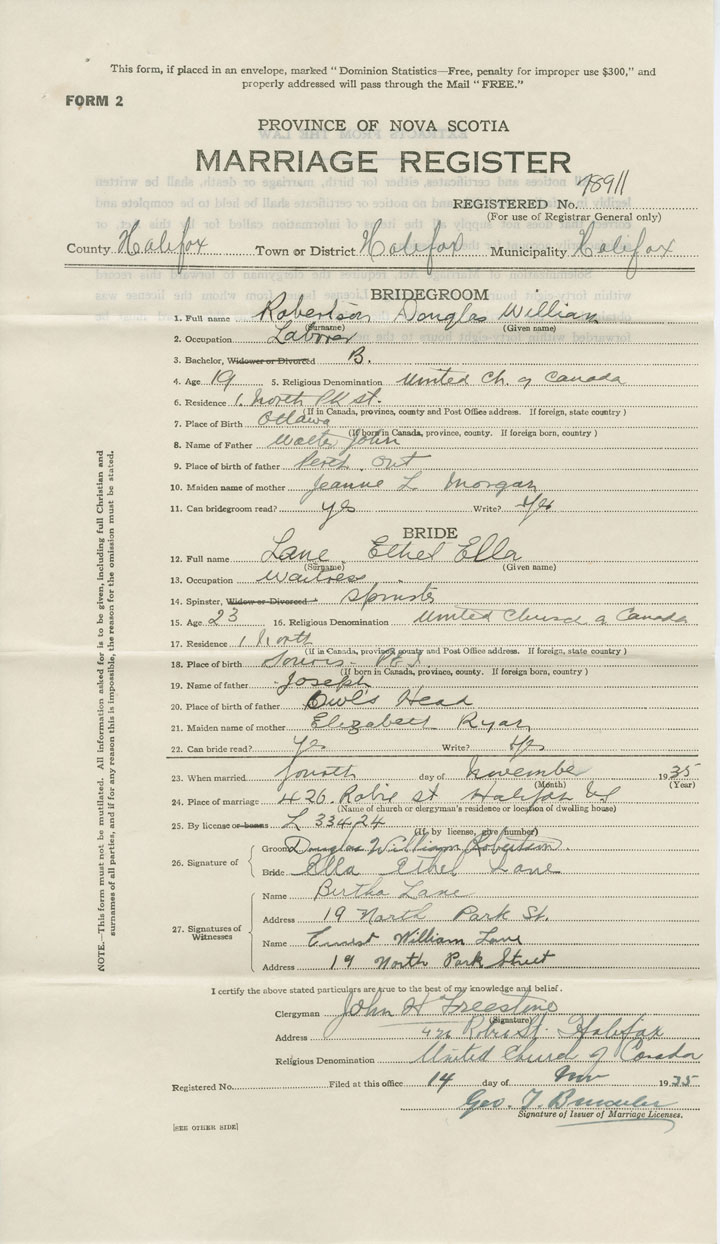 This form, if placed in an envelope, marked "Dominion Statistics—Free, penalty for improper use $300," and
properly addressed will pass through the Mail "FREE."
FORM 2
PROVINCE OF NOVA SCOTIA
MARRIAGE REGISTER
REGISTERED No. 78911
(For use of Registrar General only)
County Halifax Town or District Halifax Municipality Halifax
BRIDEGROOM
1. Full name Robertson Douglas William
(Surname) (Given name)
2. Occupation Laborer
3. Bachelor, Widower or Divorced B.
4. Age 19 5. Religious Denomination United Ch. of Canada
6. Residence 1 North PK st.
(If in Canada, province, county and Post Office address. If foreign, state country)
7. Place of Birth Ottawa
(If born in Canada, province, county. If foreign born, country)
8. Name of Father Walter John
9. Place of birth of father Perth Ont
10. Maiden name of mother Jeanne L Morgan
11. Can bridegroom read? yes Write? Yes
BRIDE
12. Full name Lane Ethel Ella
(Surname) (Given name)
13. Occupation Waitress
14. Spinster, Widow or Divorced Spinster
15. Age 23 16. Religious Denomination United Church of Canada
17. Residence 1 North
(If in Canada, province county and Post Office address. If foreign, state country)
18. Place of birth Souris - P E I.
(If born in Canada, province, county. If foreign born, country)
19. Name of father Joseph
20. Place of birth of father Owl's Head
21. Maiden name of mother Elizabeth Ryan
22. Can bride read? Yes Write? Yes
23. When married fourth day of November 1935
(Month) (Year)
24. Place of marriage 426 Robie st Halifax NS
(Name of church or clergyman's residence or location of dwelling house)
25. By license or banns L 33424
(If by license, give number)
26. Signature of Groom Douglas William Robertson
Bride Ella Ethel Lane
27. Signatures of Witnesses
Name Bertha Lane
Address 19 North Park St.
Name Ernest William Lane
Address 19 North Park Street
I certify the above stated particulars are true to the best of my knowledge and belief.
Clergyman John H Freestone
(Signature)
Address 426 Robie St. Halifax
Religious Denomination United Church of Canada
Registered No. Filed at this office 14 day of Nov 1935
Geo. T.
Signature of Issuer of Marriage Licenses.
[SEE OTHER SIDE]
NOTE.—This form must not be mutilated. All information asked for is to be given, including full Christian and
surnames of all parties, and if for any reason this is impossible, the reason for the omission must be stated.